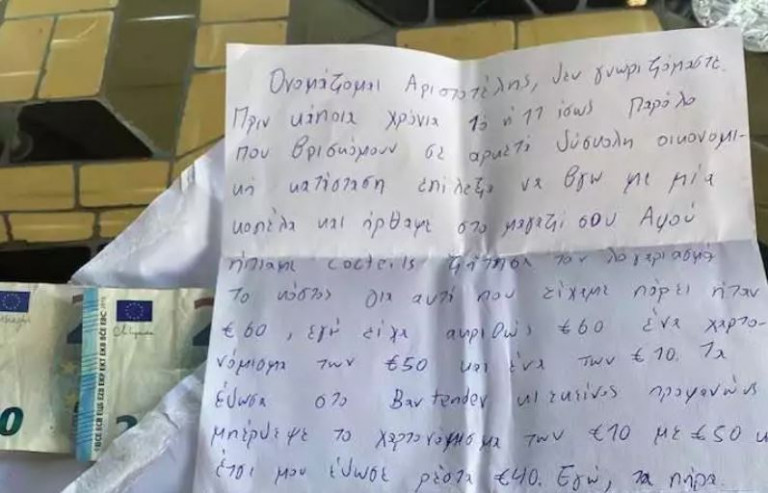 Ονομάζομαι Αριστοτέλης, δεν γνωριζόμαστε.
Πριν κάποια χρόνια 10 ή 11 ίσως Παρόλο
που βρισκόμουν σε αρκετή δύσκολη οικονομι-
κή κατάσταση επέλεξα να βγω με μία
κοπέλα και ήρθαμε στο μαγαζί σου Αφού
ήπιαμε cocteils ζήτησα τον λογαριασμό
Το κόστος για αυτά που είχαμε πάρει ήταν
€60, εγώ είχα ακριβώς €60 ένα χαρτο-
νόμισμα των €50 και ένα των €10. Τα
έδωσα στο Bartender κι εκείνος προφανώς
μπέρδεψε το χαρτονόμισμα των €10 με €50 κ
έτσι μου έδωσε ρέστα €40. Εγώ, τα πήρα.